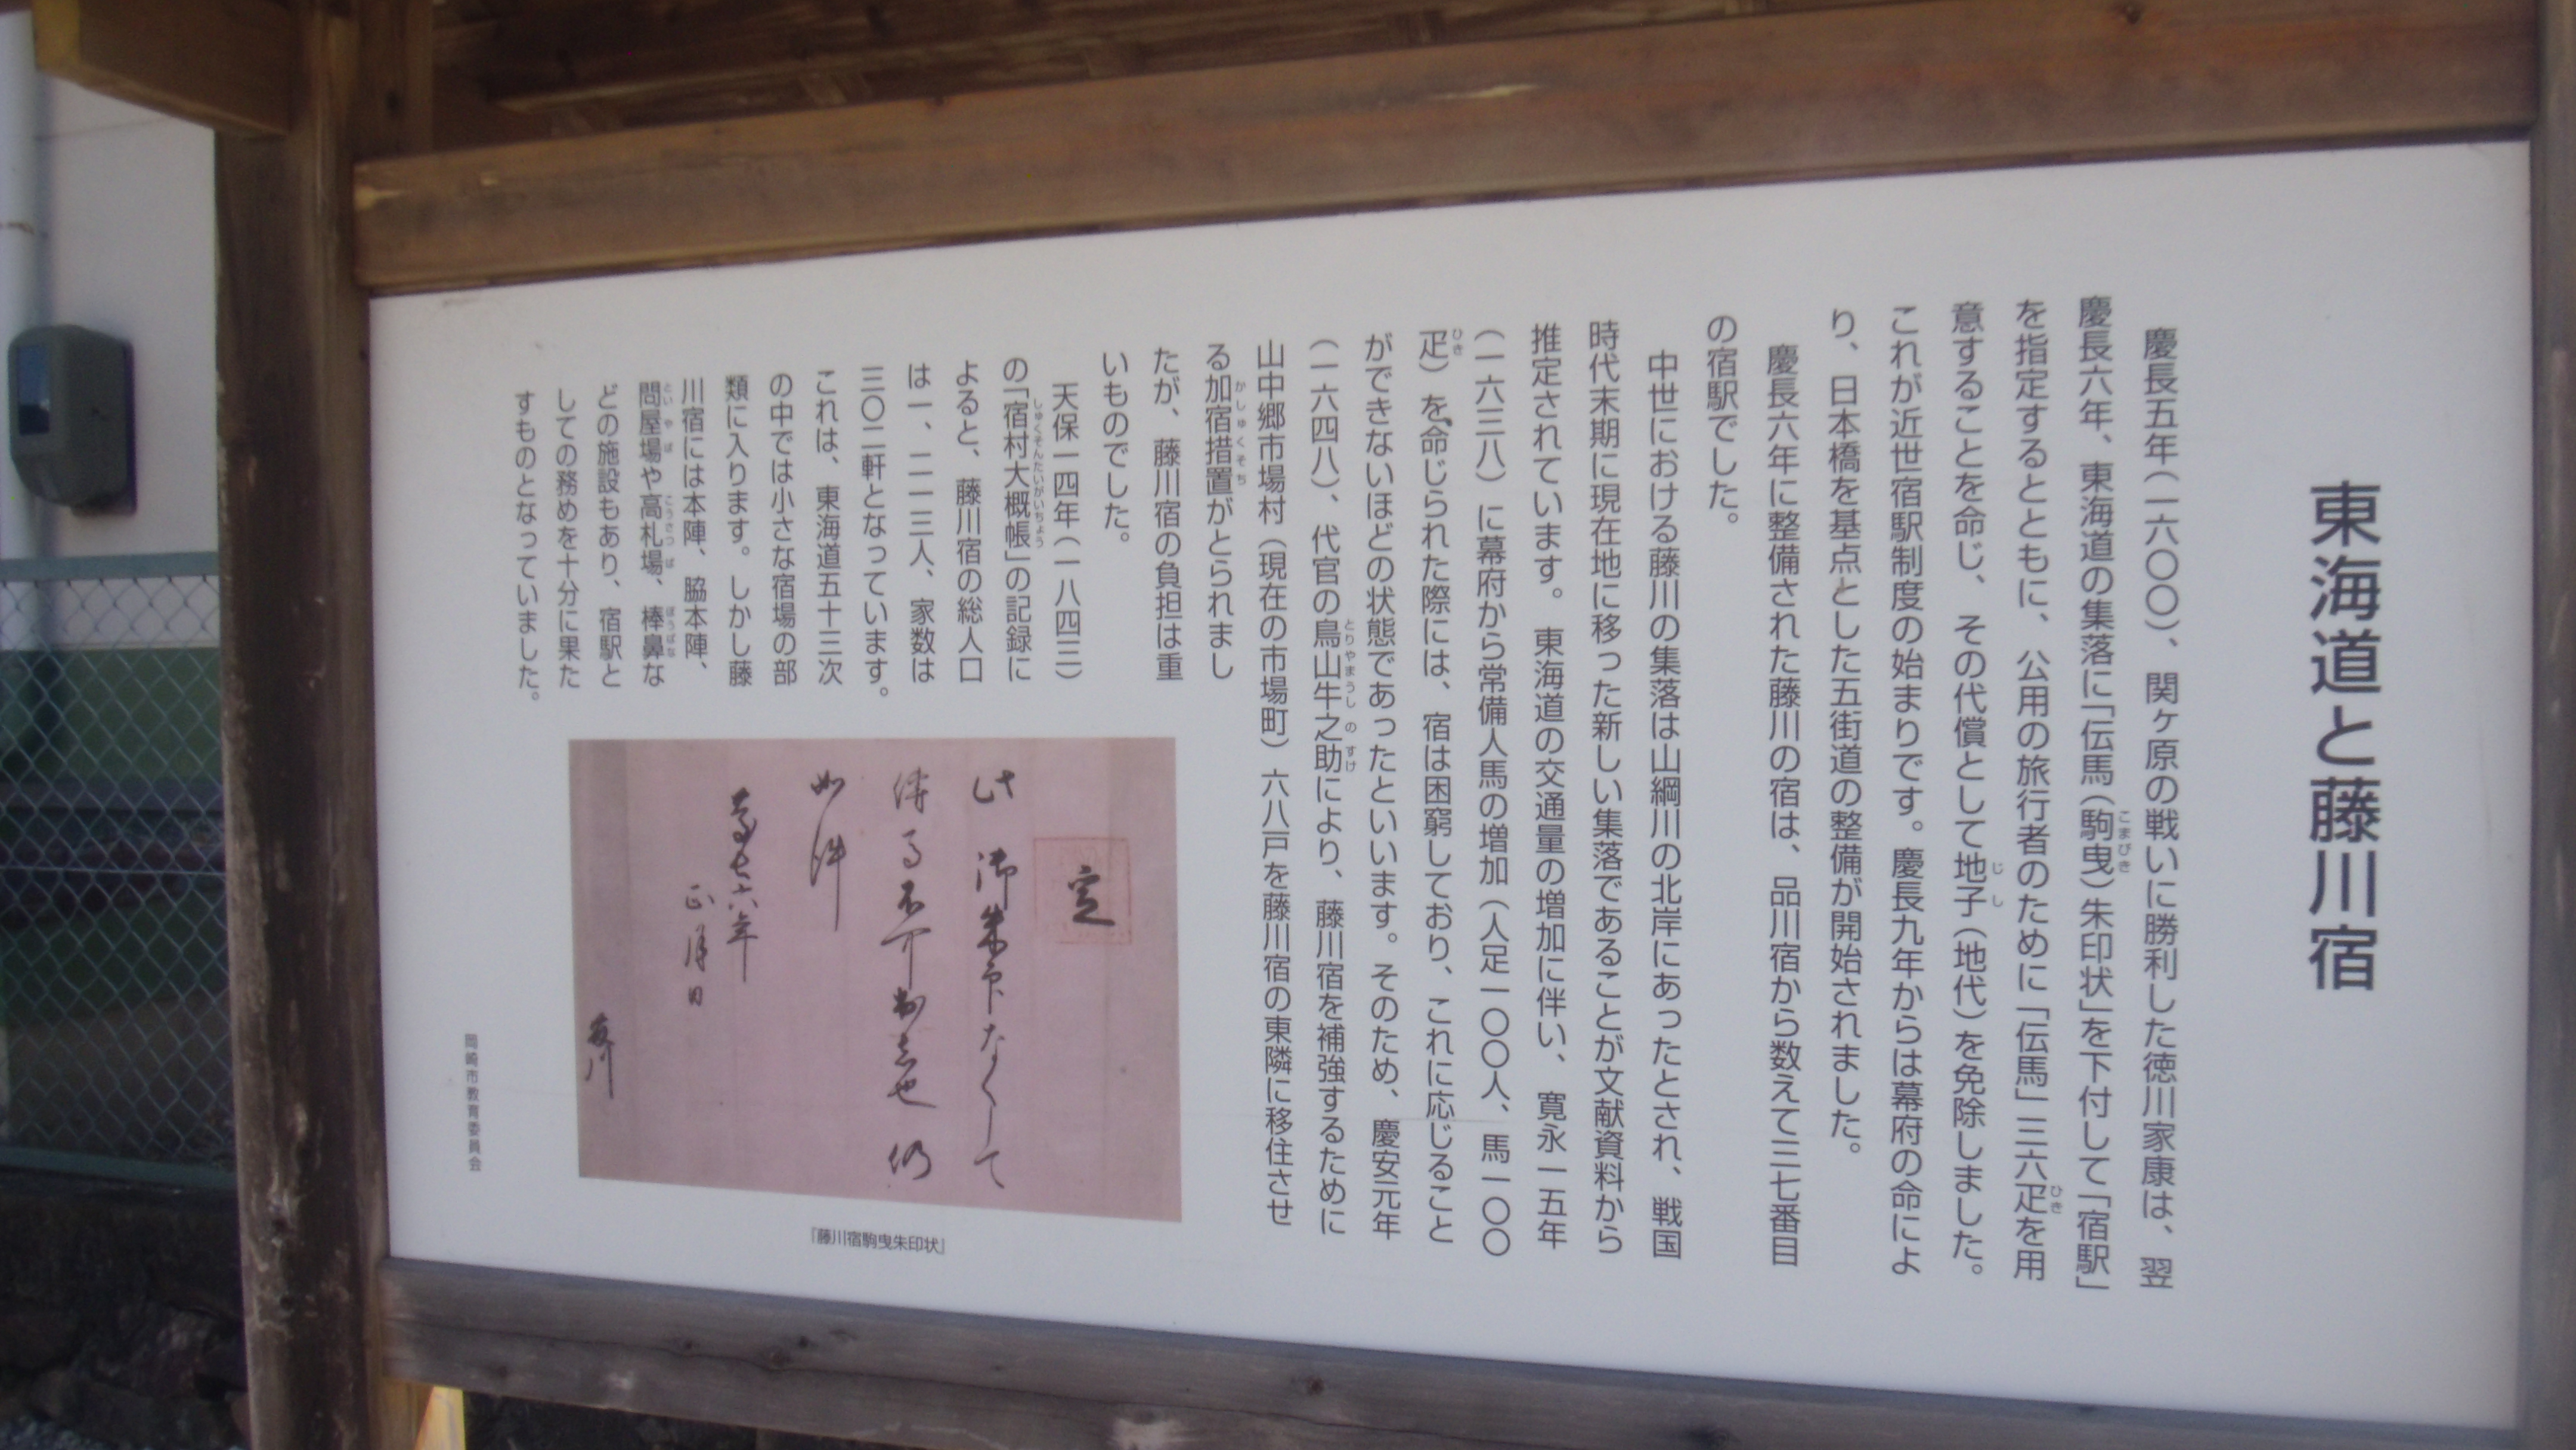 東海道と藤川宿
慶長五年（一六〇〇）、関ヶ原の戦いに勝利した徳川家康は、翌
慶長六年、東海道の集落に「伝馬（駒曳）朱印状」を下付して「宿駅」
を指定するとともに、公用の旅行者のために「伝馬」三六疋を用
意することを命じ、その代償として地子（地代）を免除しました。
これが近世宿駅制度の始まりです。慶長九年からは幕府の命によ
り、日本橋を基点とした五街道の整備が開始されました。
慶長六年に整備された藤川の宿は、品川宿から数えて三七番目
の宿駅でした。
中世における藤川の集落は山綱川の北岸にあったとされ、戦国
時代末期に現在地に移った新しい集落であることが文献資料から
推定されています。東海道の交通量の増加に伴い、寛永一五年
（一六三八）に幕府から常備人馬の増加（人足一〇〇人、馬一〇〇
疋）を命じられた際には、宿は困窮しており、これに応じること
ができないほどの状態であったといいます。そのため、慶安元年
（一六四八）、代官の鳥山牛之助により、藤川宿を補強するために
山中郷市場村（現在の市場町）六八戸を藤川宿の東隣に移住させ
る加宿措置がとられまし
たが、藤川宿の負担は重
いものでした。
天保一四年（一八四三）
の「宿村大概帳」の記録に
よると、藤川宿の総人口
は一、二一三人、家数は
三〇二軒となっています。
これは、東海道五十三次
の中では小さな宿場の部
類に入ります。しかし藤
川宿には本陣、脇本陣、
問屋場や高札場、棒鼻な
どの施設もあり、宿駅と
しての務めを十分に果た
すものとなっていました。
定
此御朱印なくして
伝馬不可出者也仍
如件
慶長六年
正月日
藤川
『藤川宿駒曳朱印状』
岡崎市教育委員会